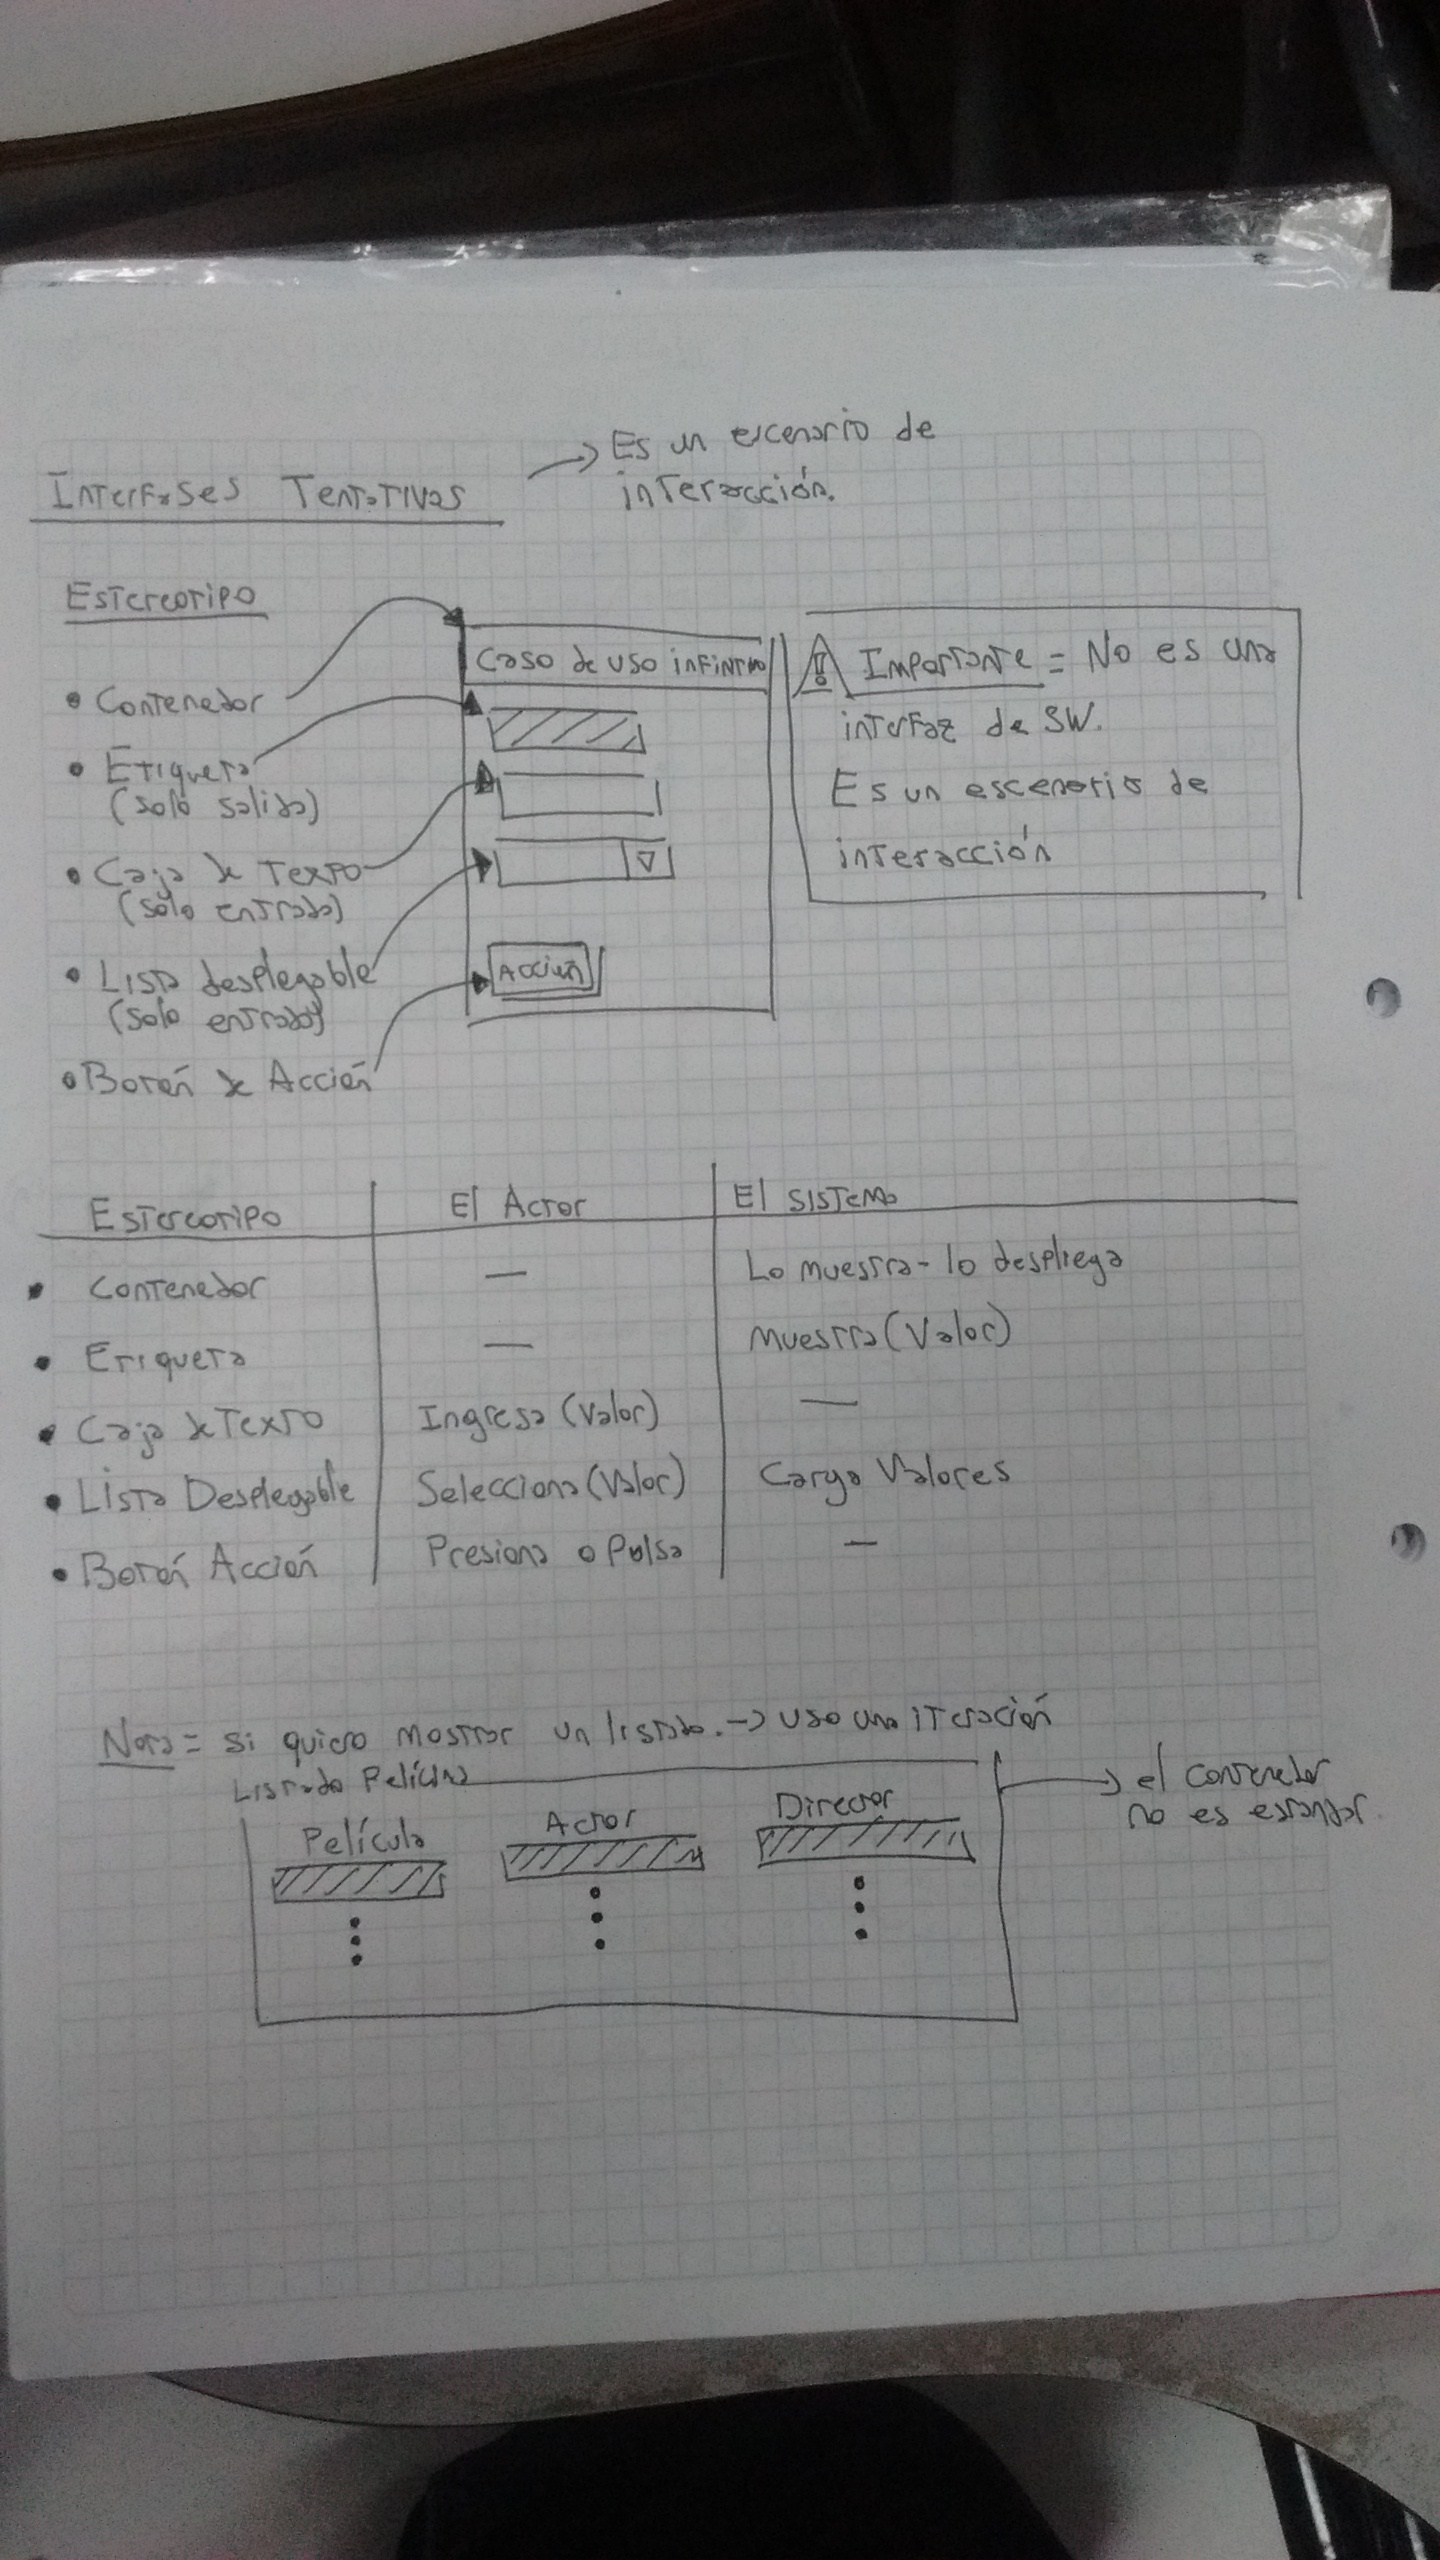 Interfases Tentativas → Es un escenario de
interacción.
Estereotipo
Caso de uso infinitivo
• Contenedor
• Etiqueta
(solo salida)
• Caja de Texto
(solo entrada)
• Lista desplegable
(solo entrada)
• Botón de Acción
Acción
Importante = No es una
interfaz de SW.
Es un escenario de
interacción
Estereotipo El Actor El sistema
• Contenedor — Lo muestra - lo despliega
• Etiqueta — muestra (Valor)
• Caja de Texto Ingresa (Valor) —
• Lista Desplegable Selecciona (Valor) Carga Valores
• Botón Acción Presiona o Pulsa —
Nota = si quiero mostrar un listado. → uso una iteración
Listado Película
Película Actor Director
→ el contenedor
no es estandar.